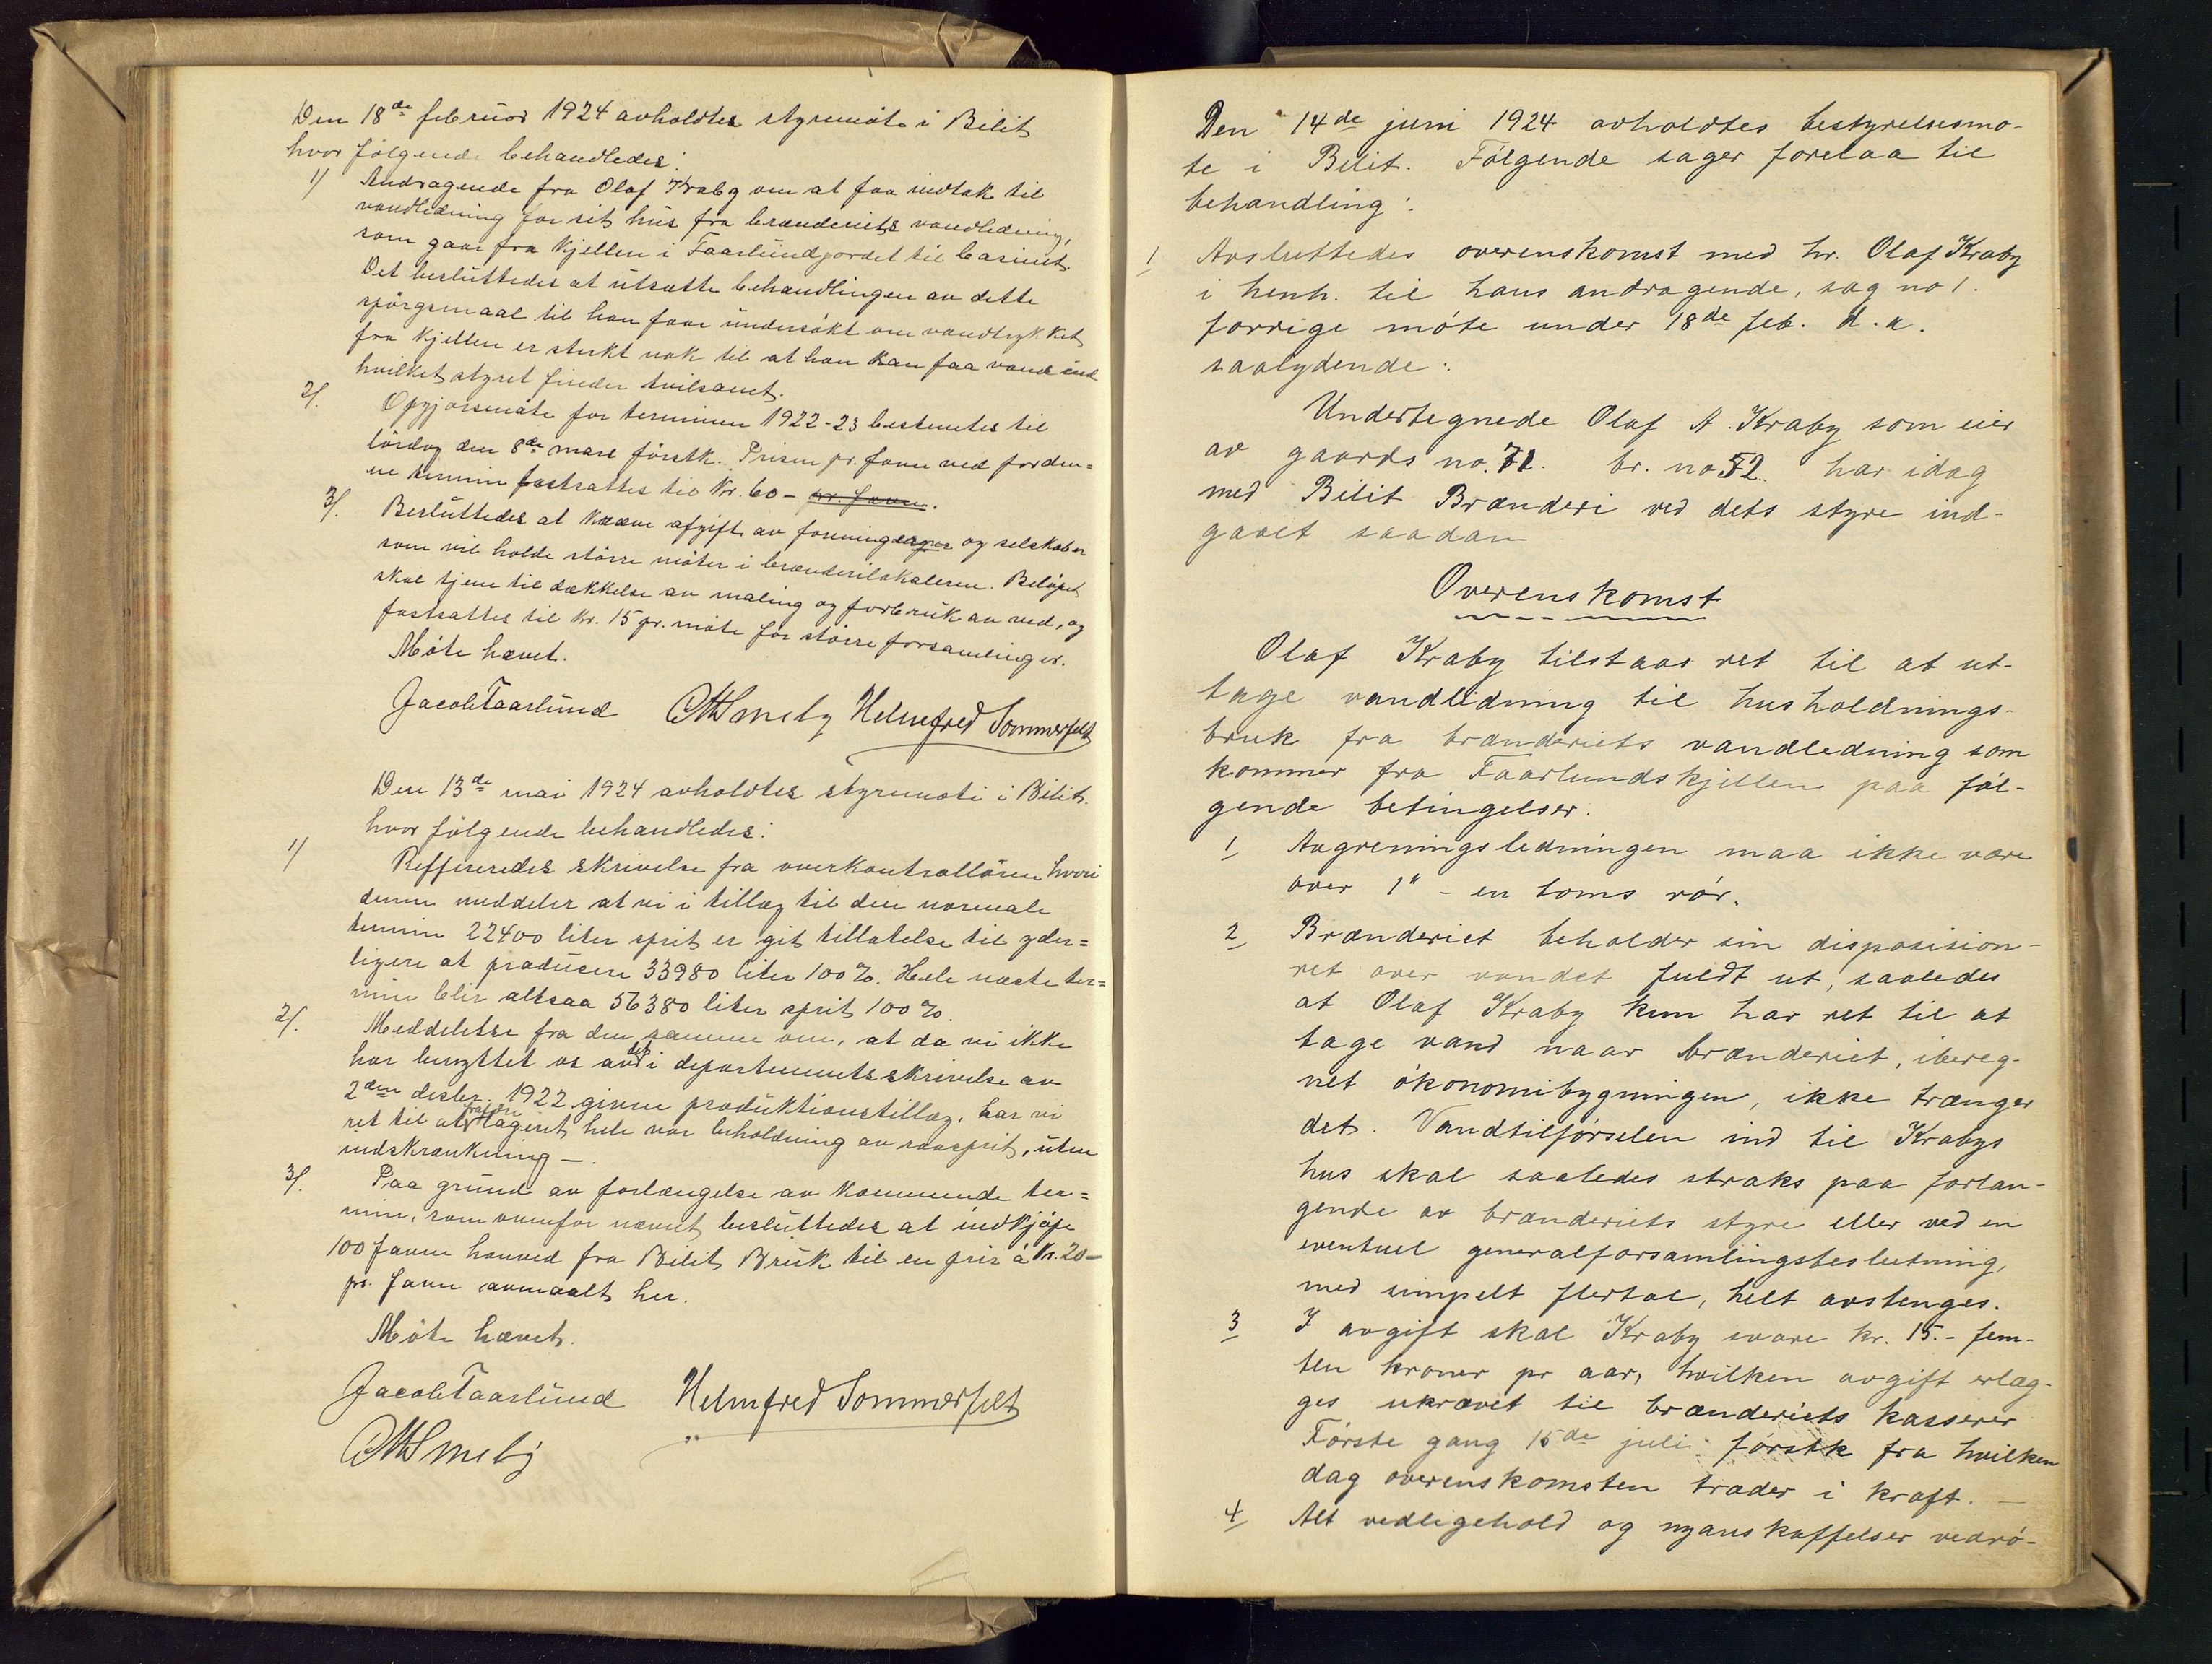 Den 18de februar 1924 avholdtes styremöte i Bilit
hvor følgende behandledes:
1/ Andragende fra Olaf Kraby om at faa indtak til
vandledning for sit hus fra brænderiets vandledning,
som gaar fra kjellen i Faarlundjordet til basinet.
Det besluttedes at utsætte behandlingen av dette
spörgsmaal til han faar undersökt om vandtrykket
fra kjellen er sterkt nok til at han kan faa vand ind
hvilket styret finder tvilsomt.
2/. Opgjörsmöte for terminen 1922-23 bestemtes til
lördag den 8de mars förstk. Prisen pr. favn ved forden=
ne termin fastsattes til Kr. 60- pr. favn.
3/. Besluttedes at kræve afgift av foreninger og selskaber
som vil holde större möter i brænderilokalerne. Belöpet
skal tjene til dækkelse av maling og forbruk av ved, og
fastsattes til kr. 15 pr. möte for större forsamlinger.
Möte hævet.
Jacob Faarlund OMSmeby Helmfred Sommerfelt
Den 13de mai 1924 avholdtes styremöte i Bilit.
hvor følgende behandledes:
1/ Reffereredes skrivelse fra overkontrollören hvori
denne meddeler at vi i tillæg til den normale
termin 22400 liter sprit er git tillatelse til yder=
ligere at producere 33980 liter 100%. Hele næste ter=
min blir altsaa 56380 liter sprit 100%.
2/. Meddelelse fra den samme om, at da vi ikke
har benyttet os av det i departementsskrivelse av
2den desbr. 1922 givne produktionstillæg, har vi
ret til at fraføre lageret hele vor beholdning av raasprit, uten
indskrænkning -.
3/. Paa grund av forlængelse av kommende ter=
min, som ovenfor nævnt, besluttedes at indkjöpe
100 favne honved fra Bilit Bruk til en pris á kr. 20-
pr. favn avmaalt her.
Möte hævet.
Jacob Faarlund Helmfred Sommerfelt
OMSmeby
Den 14de juni 1924 avholdtes bestyrelsesmö-
te i Bilit. Følgende sager forelaa til
behandling:
1 Avsluttedes overenskomst med hr. Olaf Kraby
i henh. til hans andragende, sag no 1.
forrige möte under 18de feb. d.a.
saalydende:
Undertegnede Olaf A. Kraby som eier
av gaards no. 71. br. no 52. har idag
med Bilit Brænderi ved dets styre ind-
gaaet saadan
Overenskomst
Olaf Kraby tilstaas ret til at ut-
tage vandledning til husholdnings-
bruk fra brænderiets vandledning som
kommer fra Faarlundskjellen paa föl-
gende betingelser.
1 Avgreningsledningen maa ikke være
over 1" - en toms rör.
2 Brænderiet beholder sin disposision-
ret over vandet fuldt ut, saaledes
at Olaf Kraby kun har ret til at
tage vand naar brænderiet, ibereg-
net ökonomibygningen, ikke trænger
det. Vandtilförselen ind til Krabys
hus skal saaledes straks paa forlan-
gende av brænderiets styre eller ved en
eventuel generalforsamlingsbeslutning,
med simpelt flertal, helt avstenges.
3 I avgift skal Kraby svare kr. 15.- fem-
ten kroner pr aar, hvilken avgift erlæg-
ges ukrævet til brænderiets kasserer
Förste gang 15de juli förstk fra hvilken
dag overenskomsten træder i kraft. -
4 Alt vedligehold og nyanskaffelser vedrö-